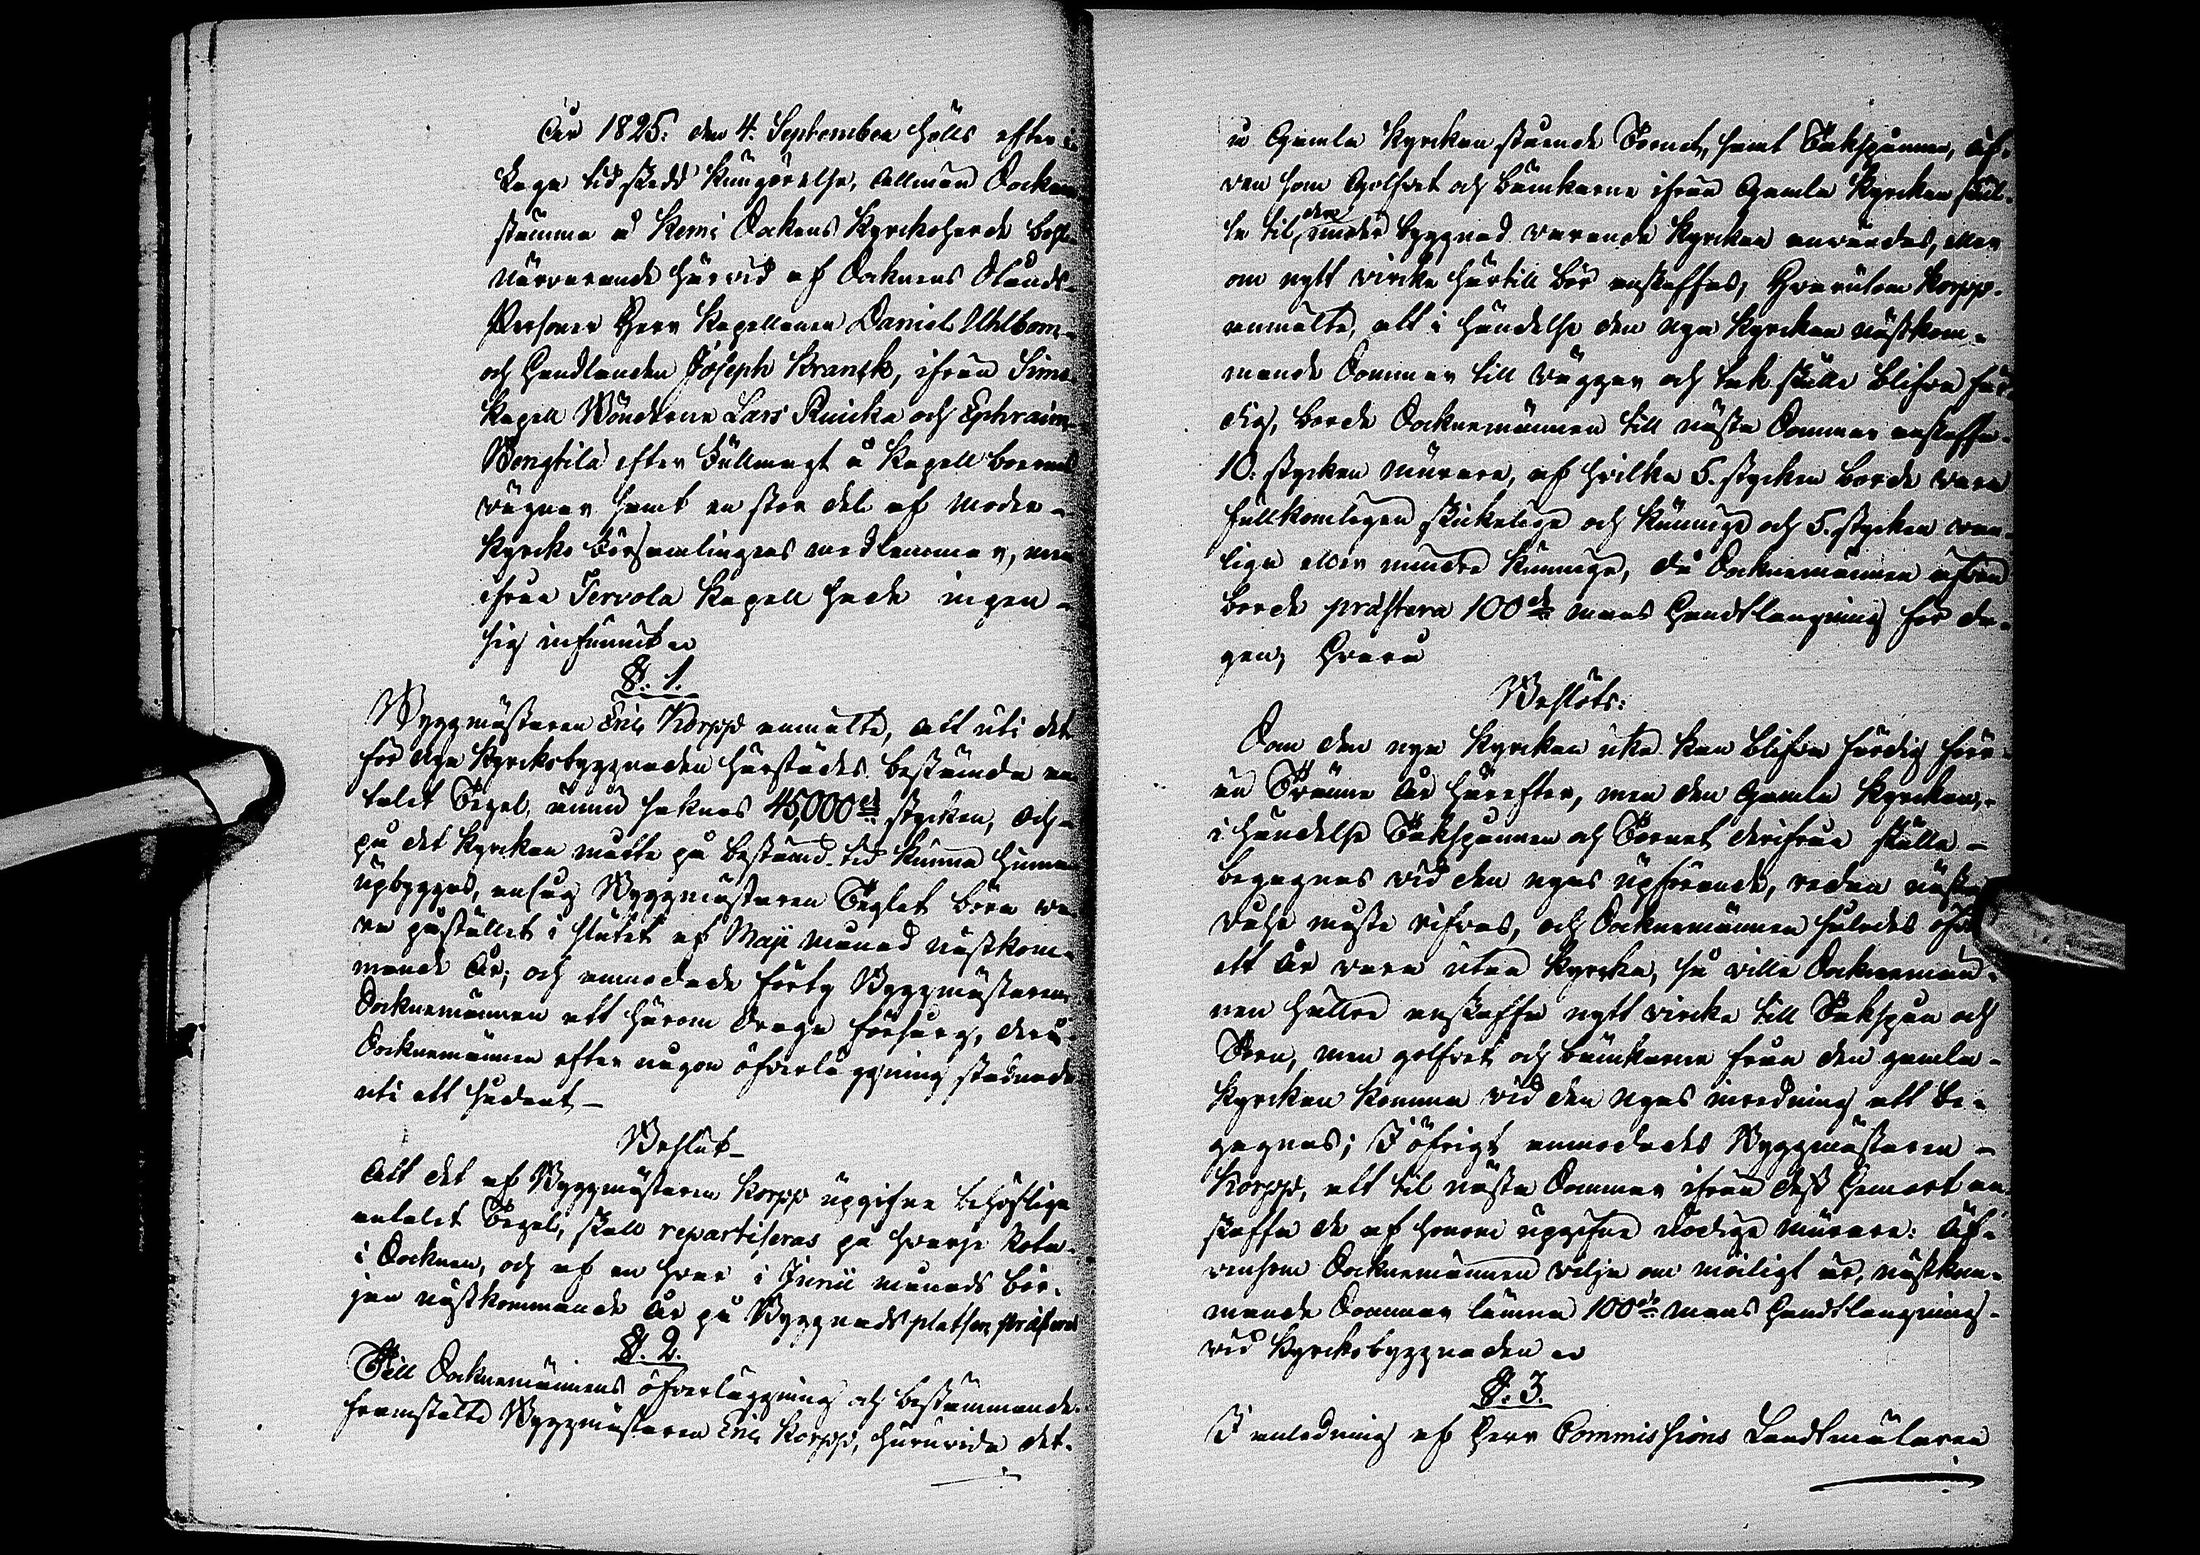 År 1825. den 4. September hölls efter i
laga tid skedd kungörelse, allmän Socken
stämma å Kemi Sockens Kyrkoherde boställe
närvarande härvid af Socknens Stånds-
Personer Herr Kapellanen Daniel Uhlbom-
och Handlanden Joseph Kranck, ifrån Simo
Kapell Bönderne Lars Ruicka och Ephraim
Bengtila efter Fullmagt å Kapell boernes
vägnar samt en stor del af Moder-
kyrko Församlingens medlemmar, men
ifrån Tervola Kapell hade ingen-
sig infunnit
§. 1.
Byggmästaren Eric Korpp anmälte, att uti det
för nya Kyrkobyggnaden härstädes bestämda an
talet Tegel, ännu saknas 45,000 st stycken, och
på det Kyrkan måtte på bestämd tid kunna hinna
upbyggas, ansåg Byggmästaren Teglet böra va
ra påstället i slutet af Maji månad nästkom-
mande År; och anmodade förty Byggmästaren
Socknemännen att härom draga försorg, derå
Socknemännen efter någon öfverläggning stadnade
uti ett sådant-
Beslut-
Att det af Byggmästaren Korpp upgifne behöflige
antalet Tegel, skall repartiseras på hvarje Rota
i Socknen, och af en hvar i Junii månads bör-
jan nästkommande År på Byggnads platsen præsteras
§. 2.
Till Socknemännens öfverläggning och bestämmande
framstälte Byggmästaren Eric Korpp, huruvida det-
å Gamla Kyrkan stående Tornet, samt Takspånen, äf-
ven som Golfvet och bänkarne ifrån Gamla Kyrkan skul-
le til den under byggnad varande Kyrkan användas, eller
om nytt virke härtill bör anskaffas, Hvarutom Korpp
anmälte, att i händelse den nya Kyrkan nästkom-
mande Sommar till väggar och tak skulle blifva fär
dig, borde Socknemännen till nästa Sommar anskaffa
10. stycken murare, af hvilka 5. stycken borde vara
fullkomligen skickelige och kunnige och 5. stycken van-
liga eller mindre kunnige, då Socknemännen äfven
borde præstera 100 de mans Handtlangning för da-
gen; Hvarå
Beslöts:
Som den nya Kyrkan icke kan blifva färdig förr
än Tvänne År härefter, men den Gamla Kyrkan,
i händelse Takspånen och Tornet derifrån skulle-
begagnas vid den nyas upförande, redan nästa
måste rifvas, och Socknemännen således öfver
ett År vara utan Kyrka, så ville Socknemän-
nen hällre anskaffa nytt virke till Takspån och
Torn, men golfvet och bänkarne från den gamla-
Kyrkan komma vid den nyas inredning att be-
gagnas; I öfrigt anmodades Byggmästaren-
Korpp, att til nästa Sommar ifrån dess hemort an
skaffa de af honom upgifne nödige murare: Äf-
vensom Socknemännen vilja om möiligt är, nästkom-
mande Sommar lämna 100 de mans Handtlangning-
vid Kyrkobyggnaden
§. 3.
I anledning af Herr Commissions Landtmätaren